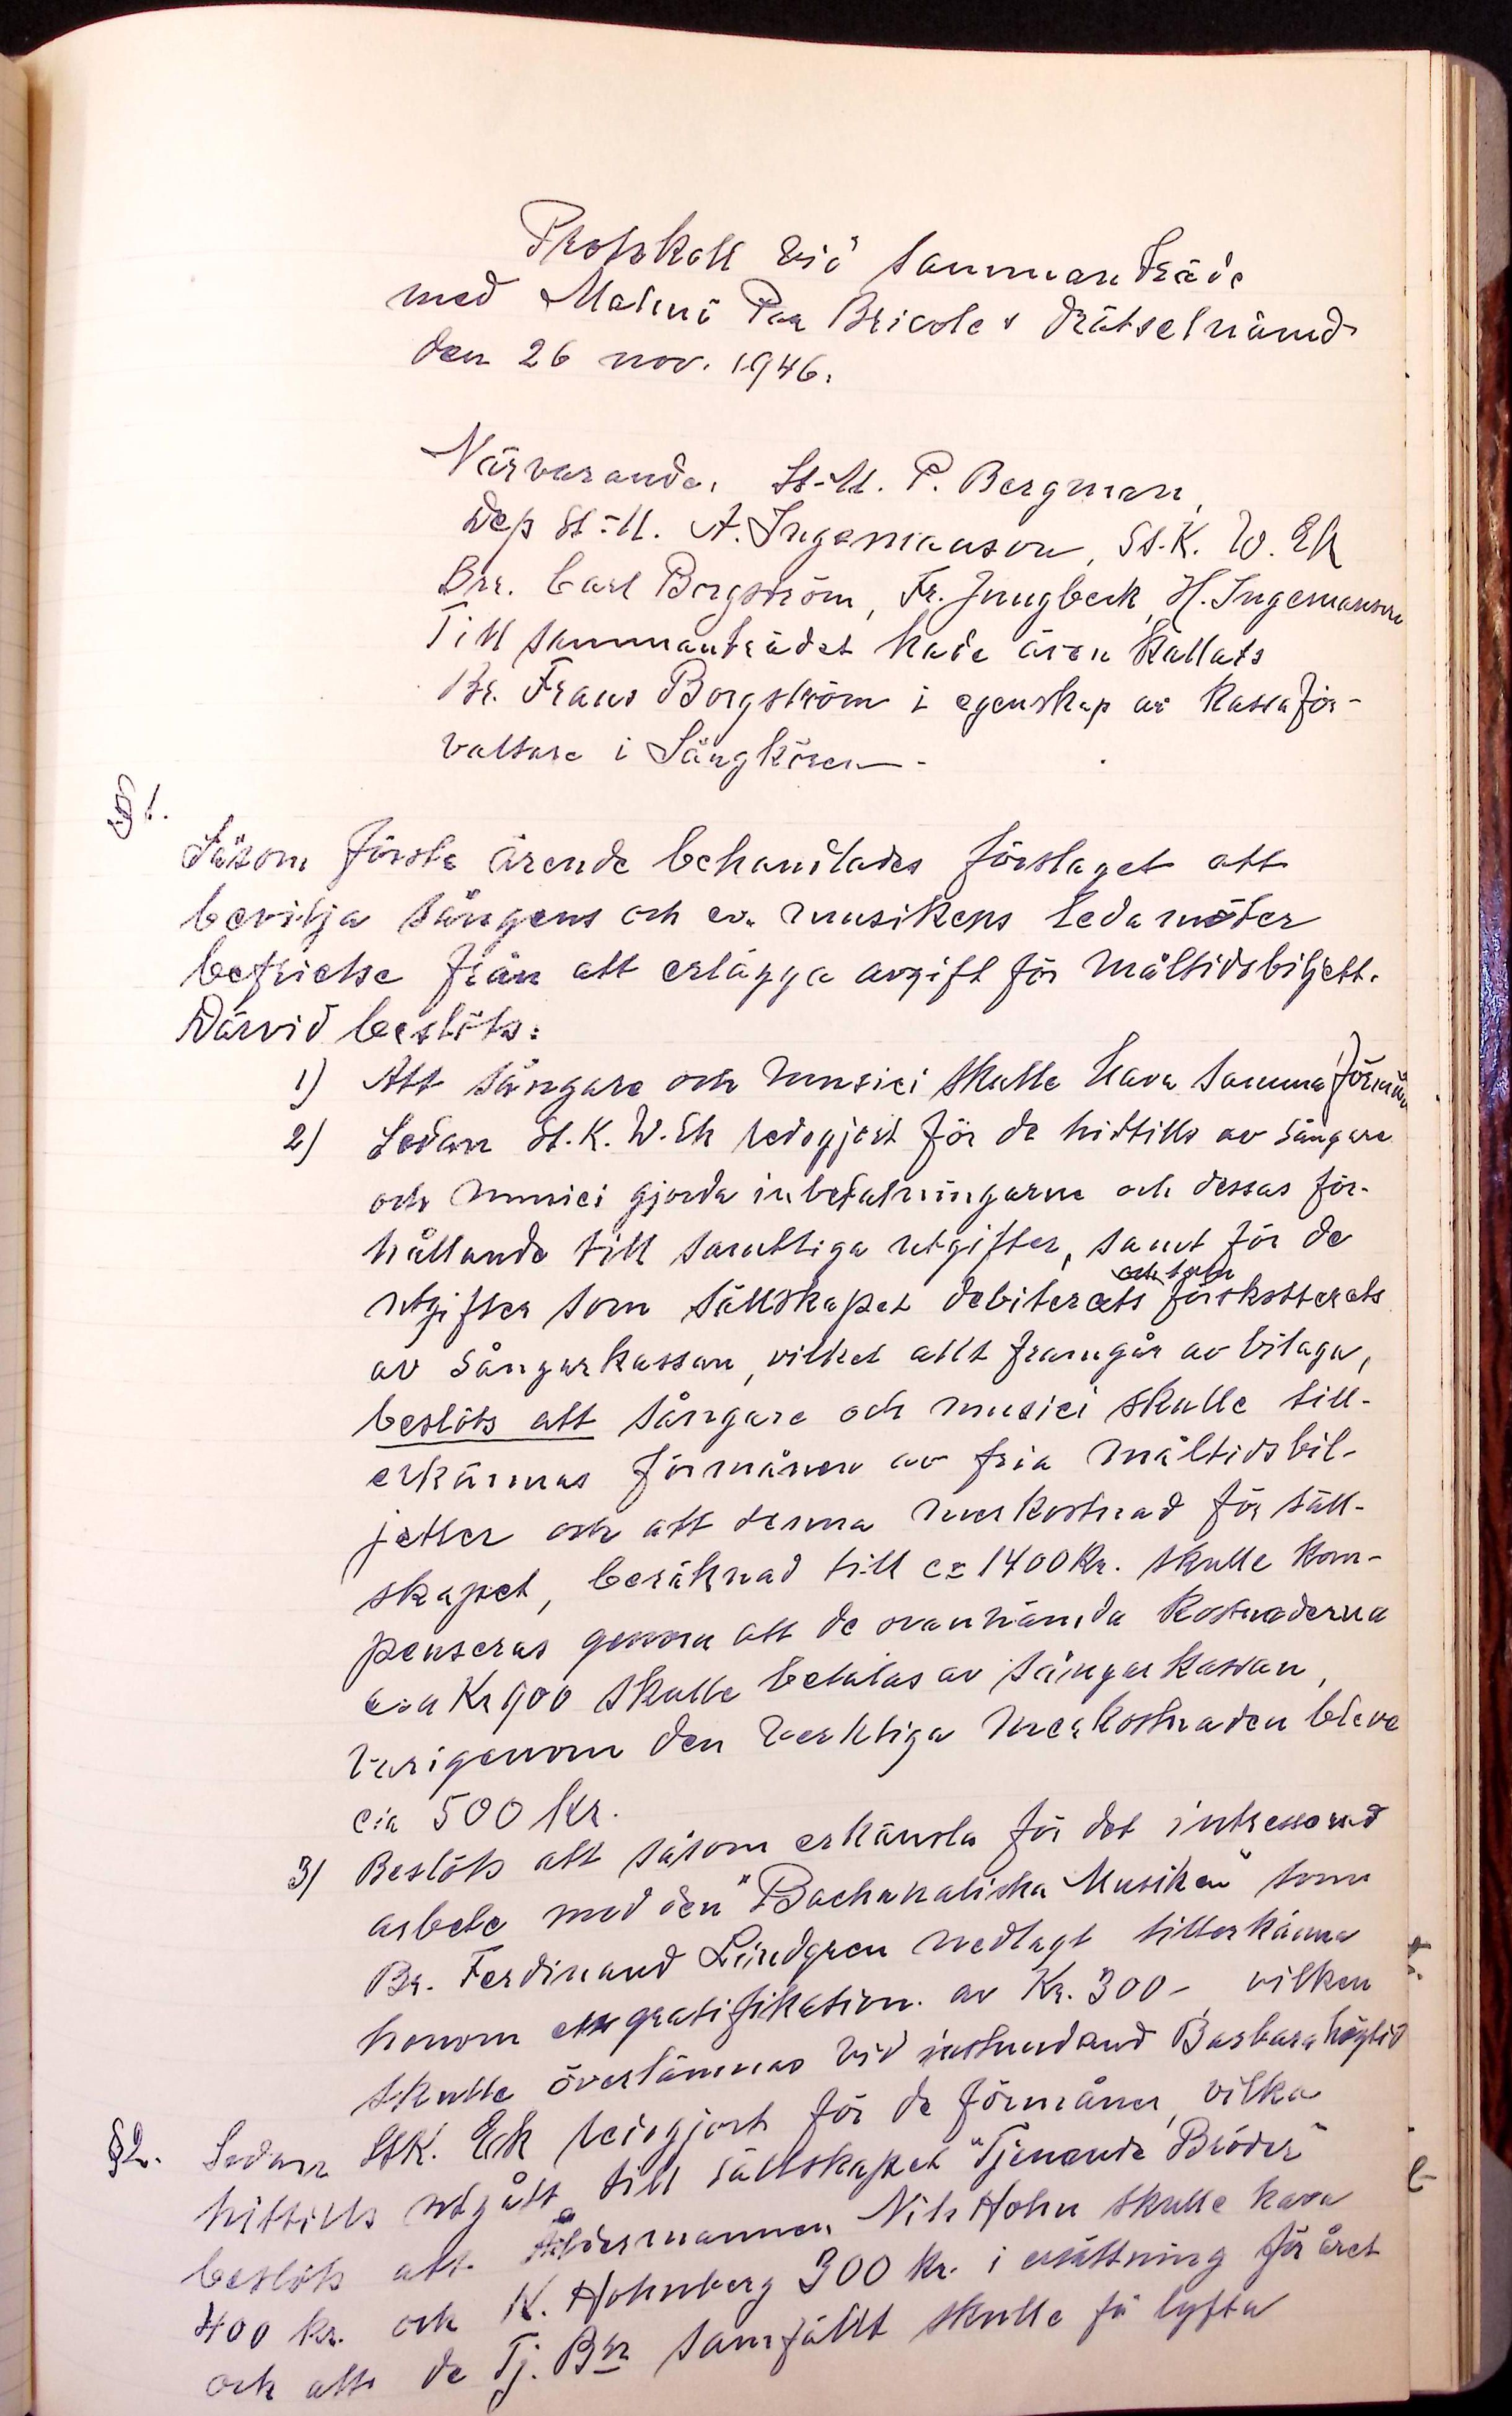 Protokoll vid sammanträde
med Malmö Par Bricoles drätselnämd
den 26 nov. 1946.
Närvarande. St-M. P. Bergman,
Dep St-M. A. Ingemanson, St.K. W. Ek
Brr. Carl Borgström, Fr. Jungbeck, H. Ingemanson
Till sammanträdet hade även kallats
Br. Frans Borgström i egenskap av kassaför-
valtare i Sångkören.
§ 1.
Såsom första ärende behandlades förslaget att
bevilja sångens och ev. musikens ledamöter
befrielse från att erlägga avgift för måltidsbiljett.
Därvid beslöts:
1) Att sångare och musici skulle hava samma förmån
2) Sedan St.K. W. Ek redogjort för de hittills av sångare
och musici gjorda inbetalningarna och dessas för-
hållande till samtliga utgifter, samt för de
och som
utgifter som sällskapet debiterats förskotterats
av sångarkassan, vilket allt framgår av bilaga,
beslöts att sångare och musici skulle till-
erkännas förmånen av fria måltidsbil-
jetter och att denna merkostnad för säll-
skapet, beräknad till ca 1400 Kr. skulle kom-
penseras genom att de ovannämda kostnaderna
c:a Kr 900 skulle betalas av sångarkassan,
varigenom den verkliga merkostnaden bleve
c:a 500 Kr.
3) Beslöts att såsom erkänsla för det intresserad
arbete med den "Bachanaliska Musiken" som
Br. Ferdinand Lindgren nedlagt tillerkänna
honom en gratifikation av Kr. 300 - vilken
skulle överlämnas vid instundand Barbarahögtid
§2. Sedan StK. Ek redogjort för de förmåner, vilka
hittills utgått till sällskapet "Tjenande Bröder"
beslöts att Åldermannen Nils Hohn skulle hava
400 kr. och K. Hohnberg 300 kr. i ersättning för året
och att de Tj. Brr samfällt skulle få lyfta